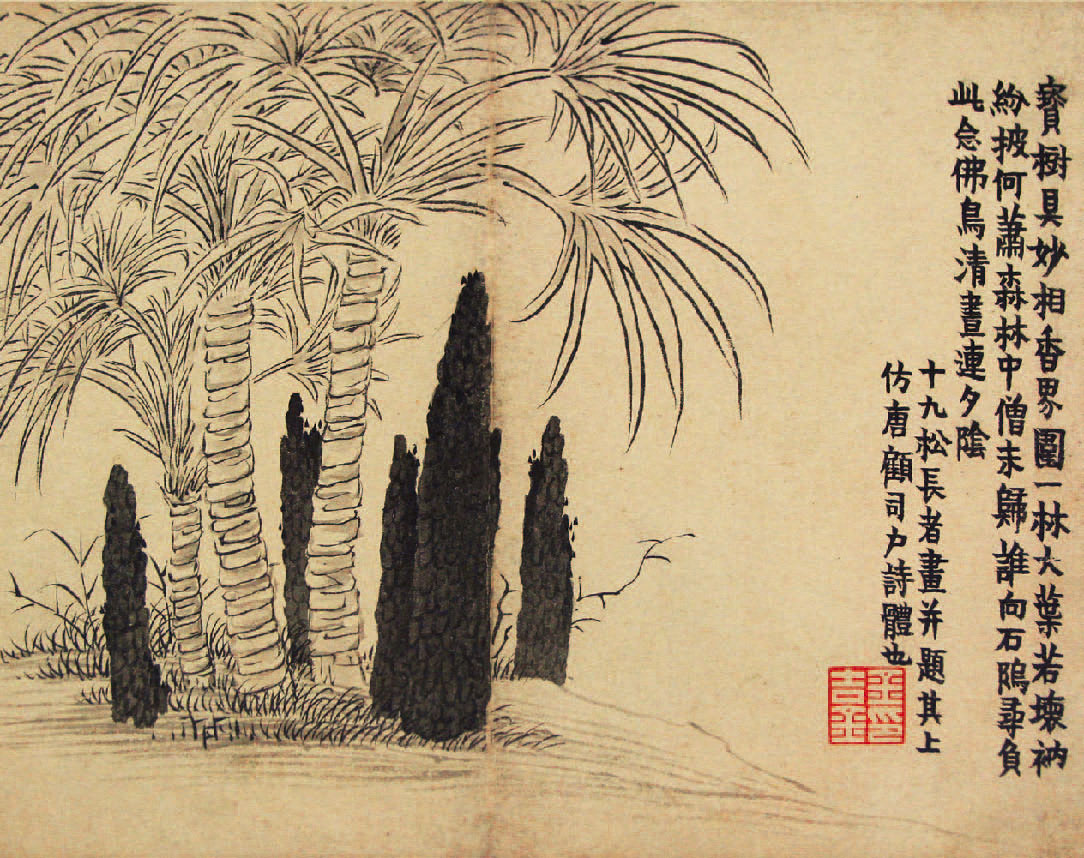 寶樹具妙相香界圍一林大葉若壞衲
紛披何蕭森林中僧未歸誰向石隖尋負
此念佛鳥清晝連夕陰
十九松長者畫并題其上
仿唐顧司户詩體也
金吉金印